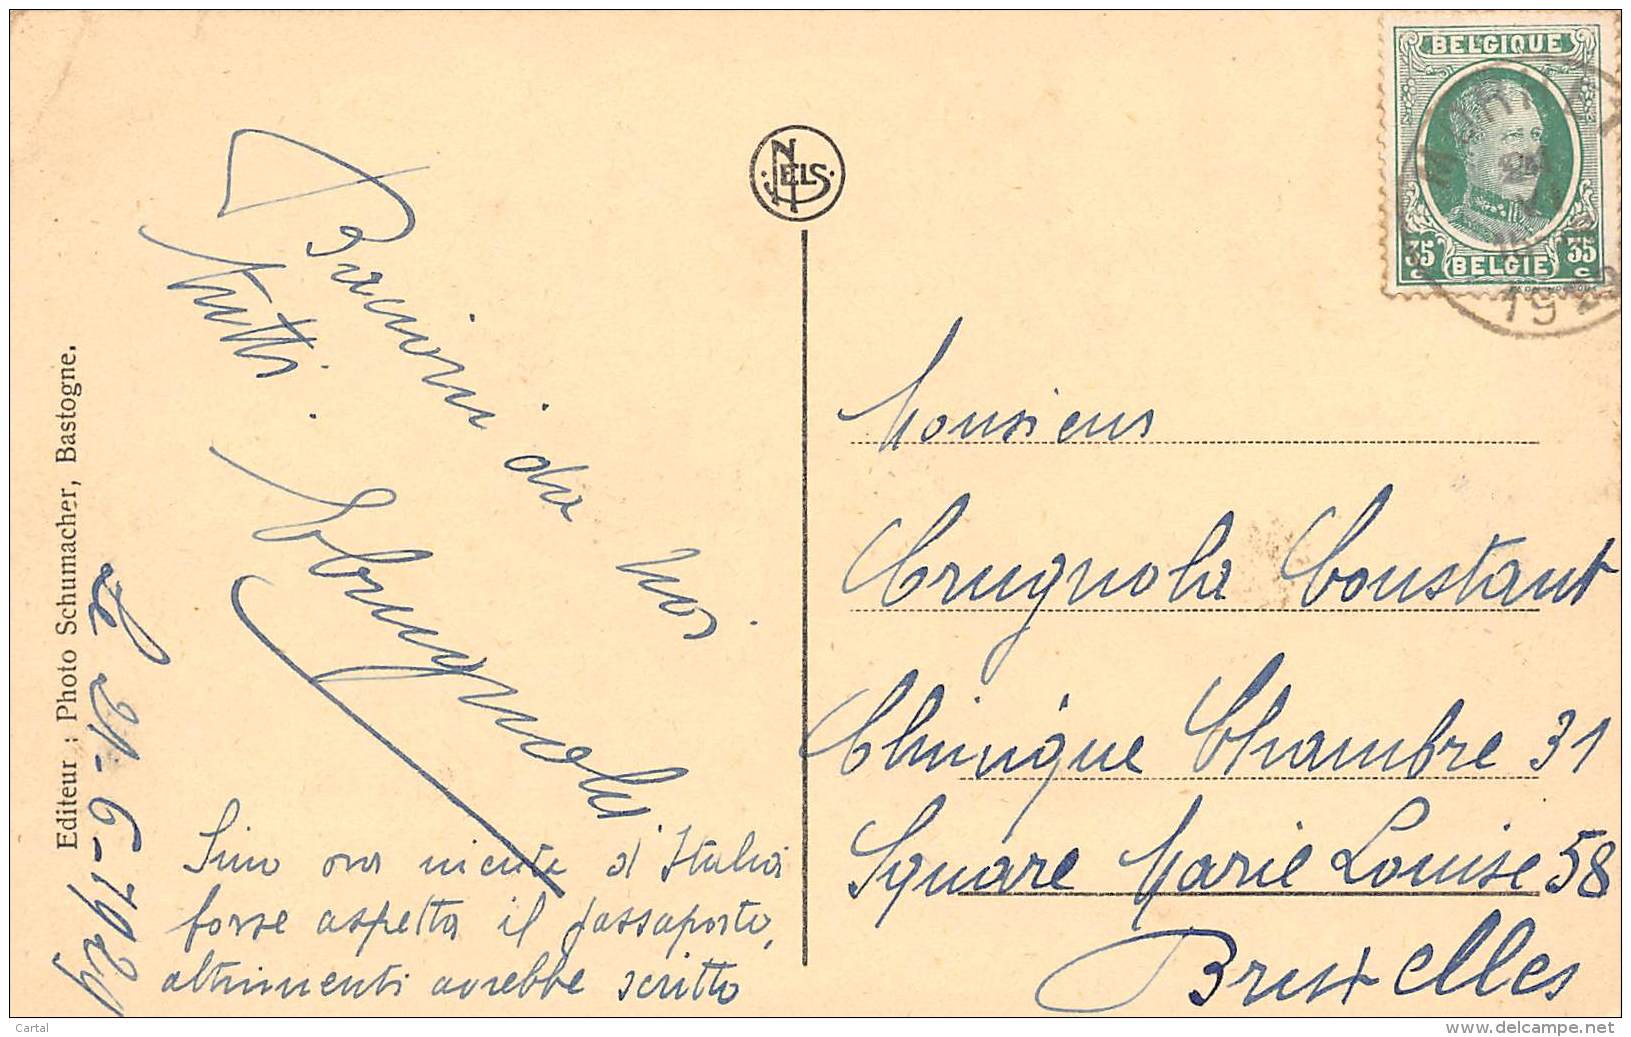 Editeur : Photo Schumacher, Bastogne.
Le 21-6-1929
Bacioni da noi
tutti.
Crugnola
Sino ora niente d'Italia
forse aspetta il passaporto,
altrimenti avrebbe scritto
NELS
BELGIQUE
35 BELGIË 35
c c
1929
Monsieur
Crugnola Constant
Clinique Chambre 31
Square Marie Louise 58
Bruxelles
Cartal
www.delcampe.net